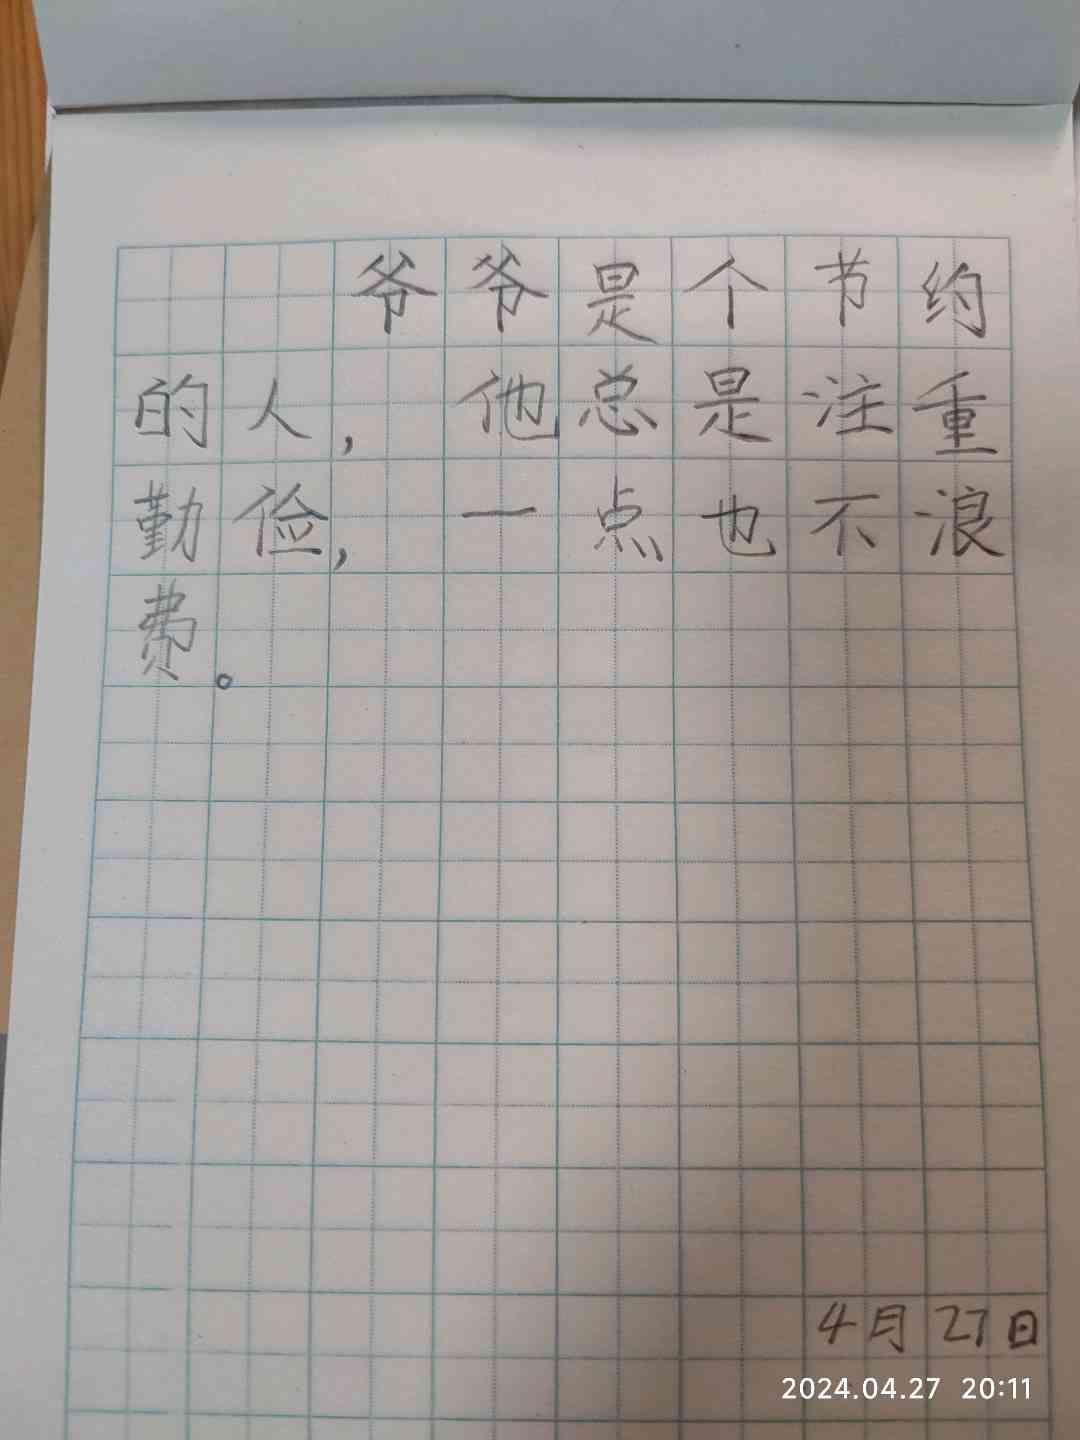 爷爷是个节约
的人，他总是注重
勤俭，一点也不浪
费。
4月27日
2024.04.27 20:11